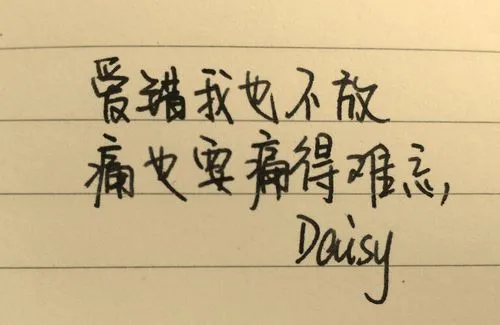 爱错我也不放
痛也要痛得难忘,
Daisy